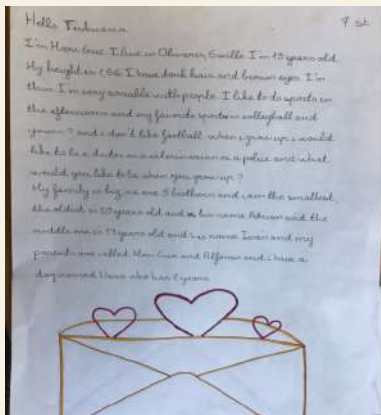 Hello
7 st
I'm I live in Olivares, Sevilla. I'm 13 years old.
My height is 1,56. I have dark hair and brown eyes. I'm
thin. I'm very sociable with people. I like to do sports in
the afternoons and my favorite sport is volleyball and
yours? and i don't like football. when i grow up, i would
like to be a doctor or a veterinarian or a police and what
would you like to be when you grow up?
My family is big, we are 3 brothers and i am the smallest,
the oldest is 20 years old and his name and the
middle one is 17 years old and name Iván and my
parents are called and Alfonso and i have a
dog named who has years